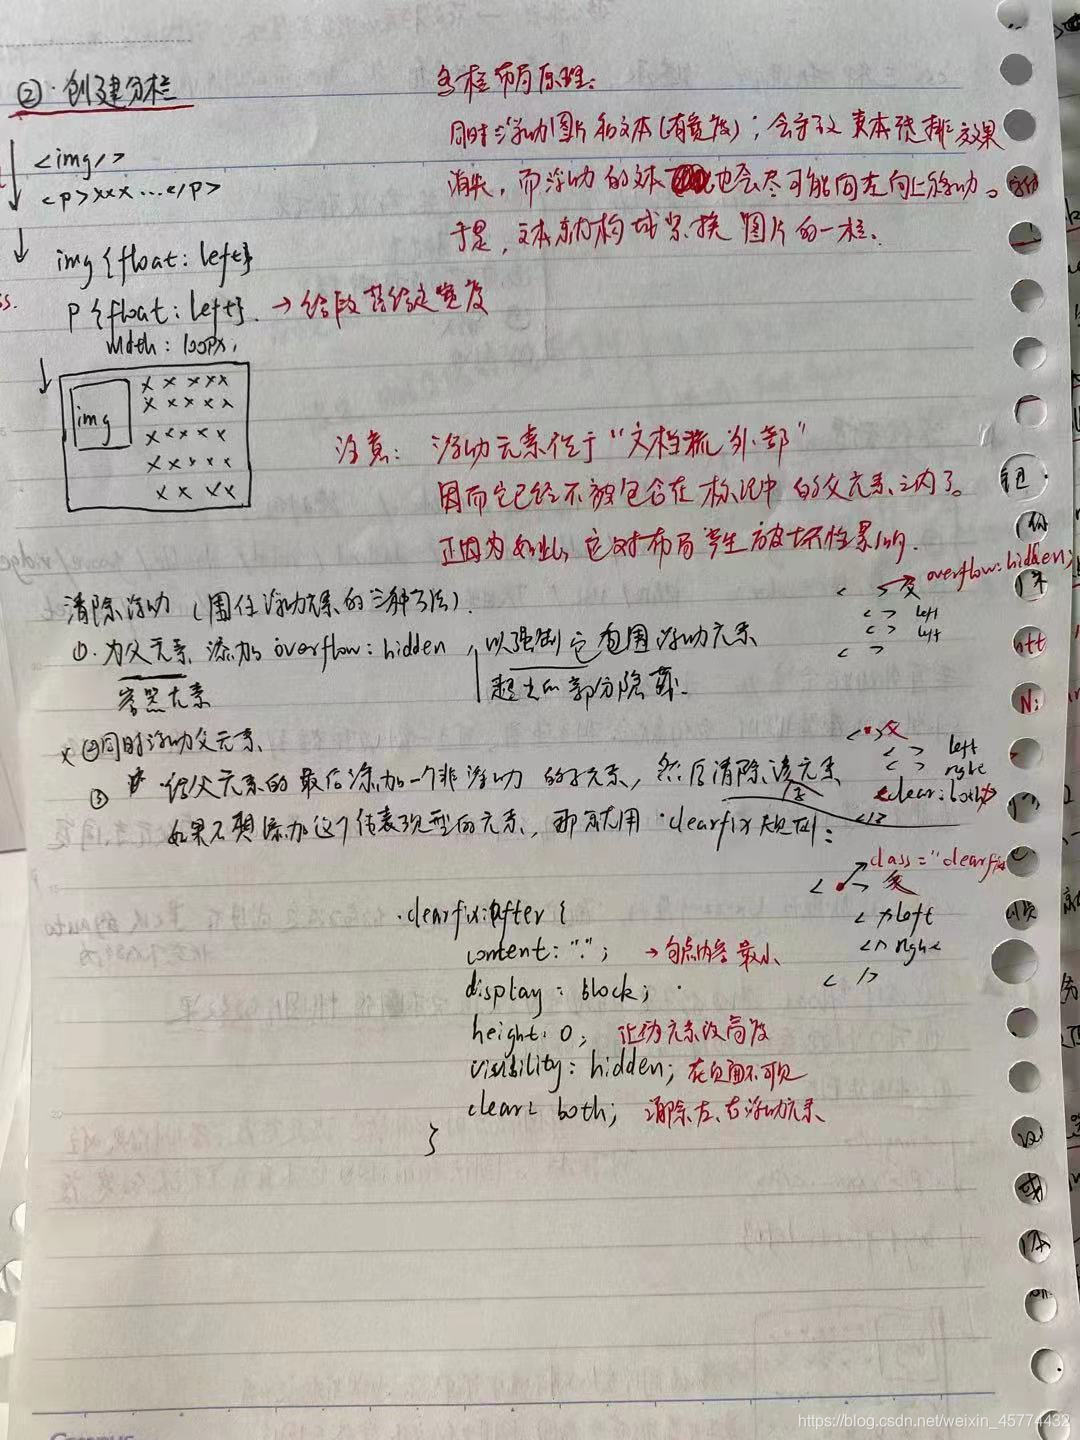 ② · 创建分栏
<img/>
<p>xxx...</p>
img {float: left}
p {float: left} → 给段落给定宽度
width: 100px,
img
多栏布局原理:
同时浮动图片和文本(有宽度);会导致文本绕排效果
消失,而浮动的文本 也会尽可能向左向上浮动。
于是,文本就构成紧挨图片的一栏。
注意: 浮动元素位于“文档流外部”
因而它已经不被包含在标记中的父元素之内了。
正因为如此,它对布局产生破坏性影响.
清除浮动 (围住浮动元素的三种方法).
①. 为父元素 添加 overflow: hidden ,以强制它包围浮动元素
超出的部分隐藏.
< > 父 overflow: hidden;
< > left
< > left
< >
x ②同时浮动父元素
③ 给父元素的最后添加一个非浮动的子元素,然后清除该元素
如果不想添加这个 表现型的元素,那就用 .clearfix规则:
< > 父
< > left
< > right
clear: both
</>
class="clearfix"
< > 父
< > left
< > right
< />
.clearfix:after {
content: "."; → 句点内容最小
display: block;
height: 0; 让伪元素没高度
visibility: hidden; 在页面不可见
clear: both; 清除左、右浮动元素
}
https://blog.csdn.net/weixin_45774432